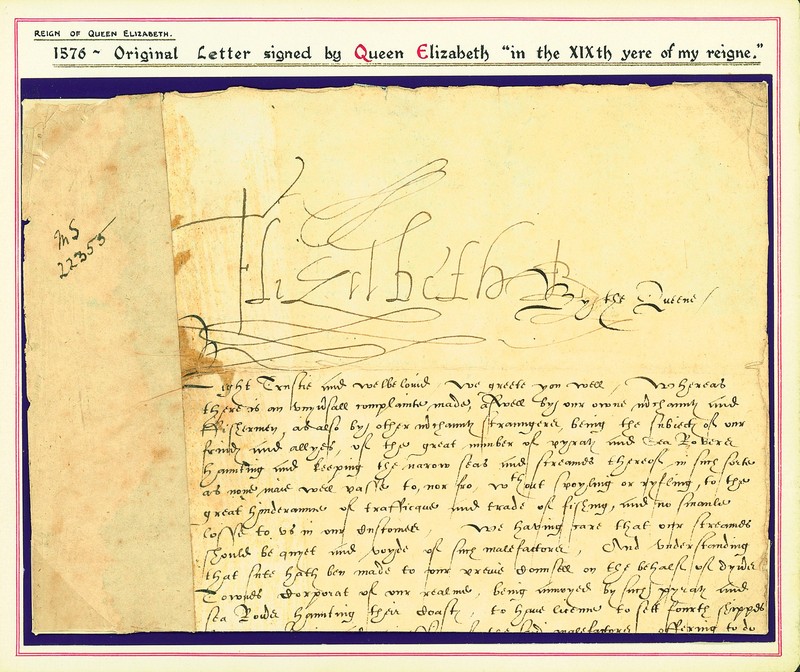 REIGN OF QUEEN ELIZABETH.
1576 ~ Original Letter signed by Queen Elizabeth "in the XIXth yere of my reigne."
MS
22355
Elizabeth R
By the Queene
Right Trustie and welbeloued we greete you well, Whereas
there is an vniuersall complainte made, aswell by our owne and
ffishermen, as also by other straungers being the subiects of our
frinds and allyes, of the great number of pyrats and Sea Rovers
haunting and keeping the narrow seas and streames thereof in such sorte
as none maie well passe to, nor fro, wthout spoyling or ryfling, to the
great hinderaunce of trafficque and trade of fishing, and no smaule
losse to us in our Customes, We having care that our streames
should be quyet and voyde of such malefactors, And understanding
that sute hath ben made to our previe Counsell on the behalf of dyvers
Townes Corporat of our realme, being annoyed by such pyrats and
sea Rovers haunting their coasts, to have license to sett fourth shippes
the said malefactors offering to do